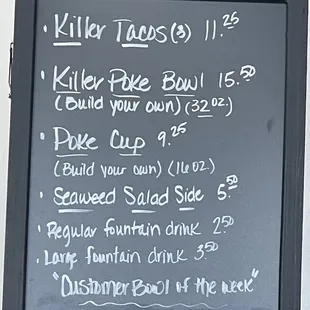 · Killer Tacos (3) 11.25
· Killer Poke Bowl 15.50
(Build your own) (32 oz.)
· Poke Cup 9.25
(Build your own) (16 oz.)
· Seaweed Salad Side 5.50
· Regular fountain drink 2.50
· Large fountain drink 3.50
"Customer Bowl of the week"